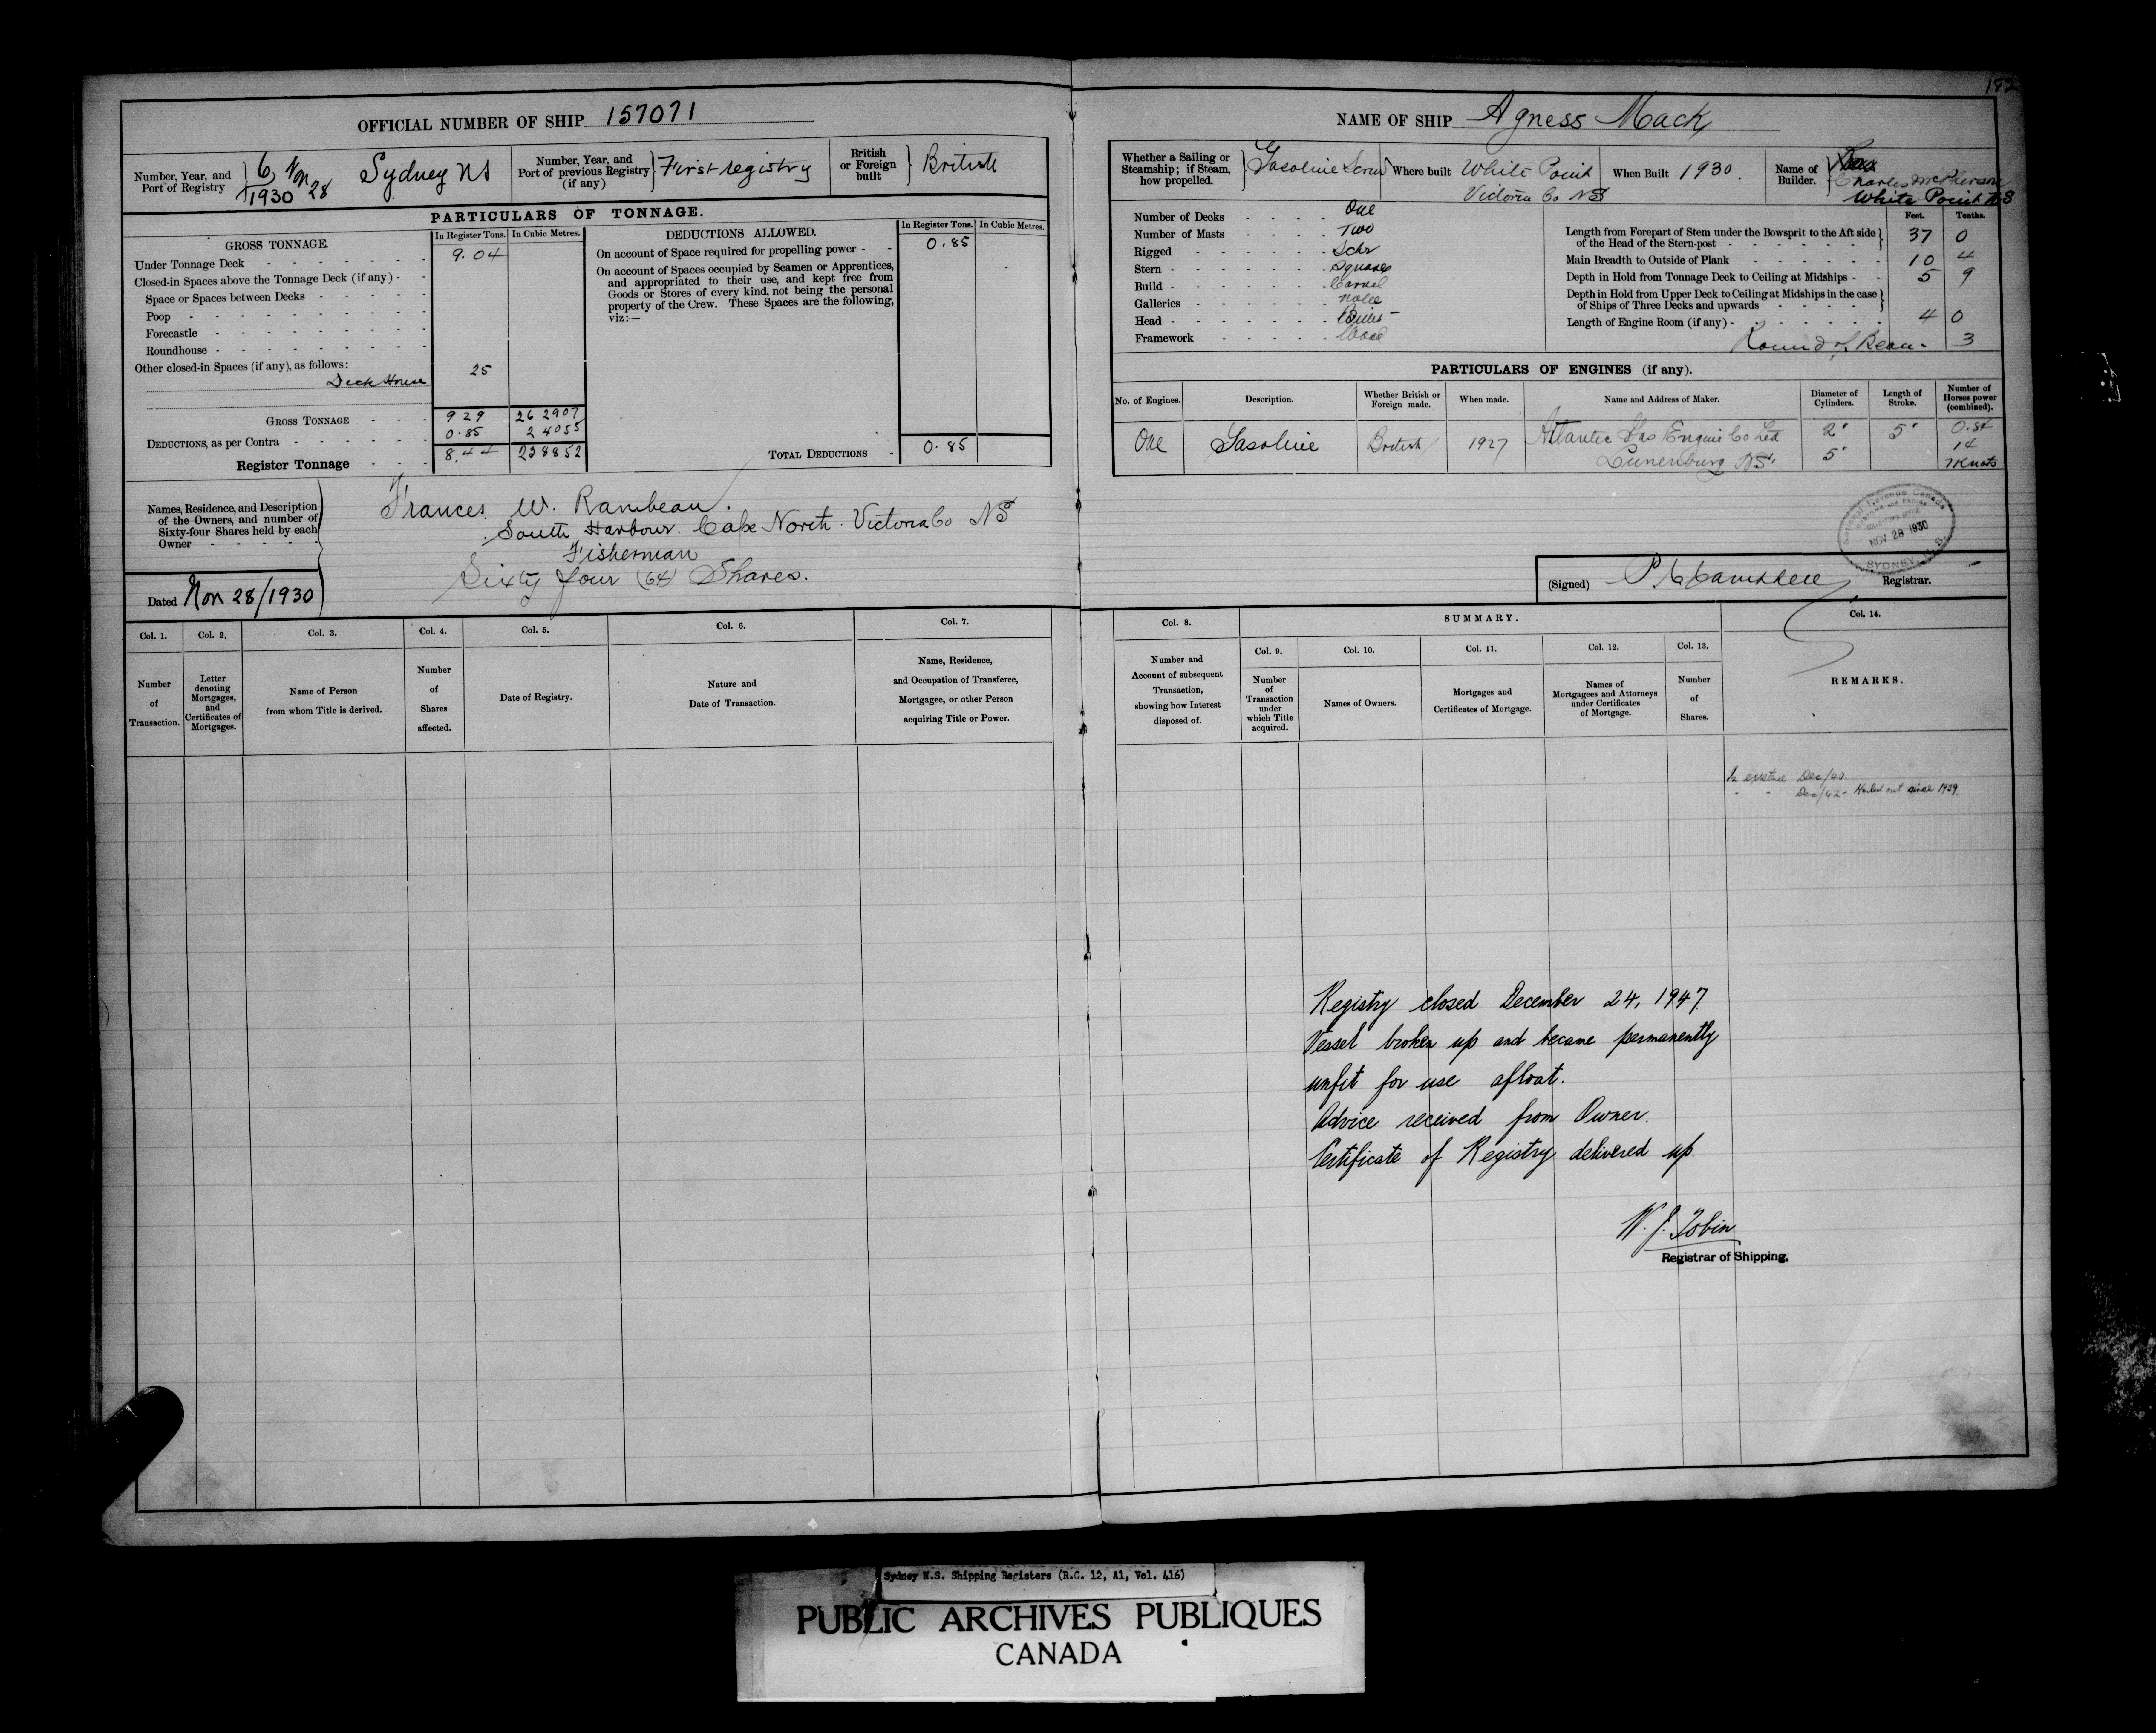 182
OFFICIAL NUMBER OF SHIP 157071
Number, Year, and Port of Registry
6 Nov 28
1930
Sydney NS
Number, Year, and Port of previous Registry (if any)
First registry
British or Foreign built
British
PARTICULARS OF TONNAGE.
GROSS TONNAGE.
In Register Tons.
In Cubic Metres.
Under Tonnage Deck 9.04
Closed-in Spaces above the Tonnage Deck (if any)
Space or Spaces between Decks
Poop
Forecastle
Roundhouse
Other closed-in Spaces (if any), as follows:
Deck House 25
GROSS TONNAGE 9 29 26 2907
DEDUCTIONS, as per Contra 0.85 2 4055
Register Tonnage 8.44 23 8852
DEDUCTIONS ALLOWED.
In Register Tons.
In Cubic Metres.
On account of Space required for propelling power 0.85
On account of Spaces occupied by Seamen or Apprentices,
and appropriated to their use, and kept free from
Goods or Stores of every kind, not being the personal
property of the Crew. These Spaces are the following,
viz:—
TOTAL DEDUCTIONS 0.85
Names, Residence, and Description
of the Owners, and number of
Sixty-four Shares held by each
Owner
Frances W. Rambeau.
South Harbour. Cape North. Victoria Co NS
Fisherman
Sixty four (64) Shares.
Dated Nov 28/1930
Col. 1.
Number
of
Transaction.
Col. 2.
Letter
denoting
Mortgages,
and
Certificates of
Mortgages.
Col. 3.
Name of Person
from whom Title is derived.
Col. 4.
Number
of
Shares
affected.
Col. 5.
Date of Registry.
Col. 6.
Nature and
Date of Transaction.
Col. 7.
Name, Residence,
and Occupation of Transferee,
Mortgagee, or other Person
acquiring Title or Power.
NAME OF SHIP Agness Mack
Whether a Sailing or
Steamship; if Steam,
how propelled.
Gasoline Screw
Where built White Point
Victoria Co NS
When Built 1930.
Name of Builder.
Charles McPherson
White Point NS
Number of Decks One
Number of Masts Two
Rigged Schr
Stern Square
Build Carvel
Galleries None
Head
Framework Wood
Feet. Tenths.
Length from Forepart of Stem under the Bowsprit to the Aft side
of the Head of the Stern-post 37 0
Main Breadth to Outside of Plank 10 4
Depth in Hold from Tonnage Deck to Ceiling at Midships 5 9
Depth in Hold from Upper Deck to Ceiling at Midships in the case
of Ships of Three Decks and upwards
Length of Engine Room (if any) 4 0
Round of Beam 3
PARTICULARS OF ENGINES (if any).
No. of Engines.
Description.
Whether British or
Foreign made.
When made.
Name and Address of Maker.
Diameter of
Cylinders.
Length of
Stroke.
Number of
Horses power
(combined).
One Gasoline British 1927 Atlantic Gas Engine Co Ltd 2" 5"
Lunenburg NS. 5" 14
7 Knots
National Revenue Canada
NOV 28 1930
SYDNEY, N.S.
(Signed) P Campbell Registrar.
Col. 8.
Number and
Account of subsequent
Transaction,
showing how Interest
disposed of.
SUMMARY.
Col. 9.
Number
of
Transaction
under
which Title
acquired.
Col. 10.
Names of Owners.
Col. 11.
Mortgages and
Certificates of Mortgage.
Col. 12.
Names of
Mortgagees and Attorneys
under Certificates
of Mortgage.
Col. 13.
Number
of
Shares.
Col. 14.
REMARKS.
In existence Dec/40.
" " Dec/42 - Hauled out since 1939.
Registry closed December 24, 1947
Vessel broken up and became permanently
unfit for use afloat.
Advice received from Owner.
Certificate of Registry delivered up
W. J. Tobin
Registrar of Shipping.
Sydney N.S. Shipping Registers (R.G. 12, A1, Vol. 416)
PUBLIC ARCHIVES PUBLIQUES
CANADA